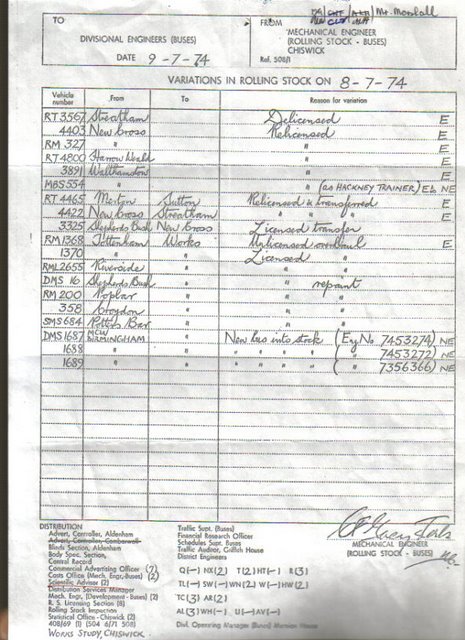 Mr. Marshall
TO
DIVISIONAL ENGINEERS (BUSES)
DATE 9-7-74
FROM
MECHANICAL ENGINEER
(ROLLING STOCK - BUSES)
CHISWICK
Ref. 508/1
VARIATIONS IN ROLLING STOCK ON 8-7-74
Vehicle number From To Reason for variation
RT 3567 Streatham Delicensed E
4403 New Cross Relicensed E
RM 327 " " E
RT 4800 Harrow Weald " E
3891 Walthamstow " E
MBS 554 " " (as HACKNEY TRAINER) Eb NE
RT 4465 Merton Sutton Relicensed & transferred E
4422 New Cross Streatham " " " E
3325 Shepherds Bush New Cross Licensed transfer
RM 1368 Tottenham Works Unlicensed overhaul E
1370 " " Licensed "
RML 2655 Riverside " " "
DMS 16 Shepherds Bush " " repaint
RM 200 Poplar " " "
358 Croydon " " "
SMS 684 Potters Bar " " "
DMS 1687 MCW BIRMINGHAM " New bus into stock (Eng No 7453274) NE
1688 " " " " " " ( " " 7453272) NE
1689 " " " " " " ( " " 7356366) NE
DISTRIBUTION
Advert, Controller, Aldenham
Advert, Controller, Camberwell
Blinds Section, Aldenham
Body Spec. Section,
Central Record
Commercial Advertising Officer (7)
Costs Office (Mech. Engr.-Buses) (2)
Scientific Adviser (2)
Distribution Services Manager
Mech. Engr. (Development - Buses) (2)
R. S. Licensing Section (8)
Rolling Stock Inspection
Statistical Office - Chiswick (2)
408/69 (1) 504 6/71 508)
WORKS STUDY, CHISWICK
Traffic Supt. (Buses)
Financial Research Officer
Schedules Supt. Buses
Traffic Auditor, Griffith House
District Engineers
Q(-) NX(2) T(2) HT(-) R(3)
TL(-) SW(-) WN(2) W(-) HW(2)
TC(3) AR(2)
AL(3) WH(-) U(-) AV(-)
Divl. Operating Manager (Buses) Mansion House
MECHANICAL ENGINEER
(ROLLING STOCK - BUSES)